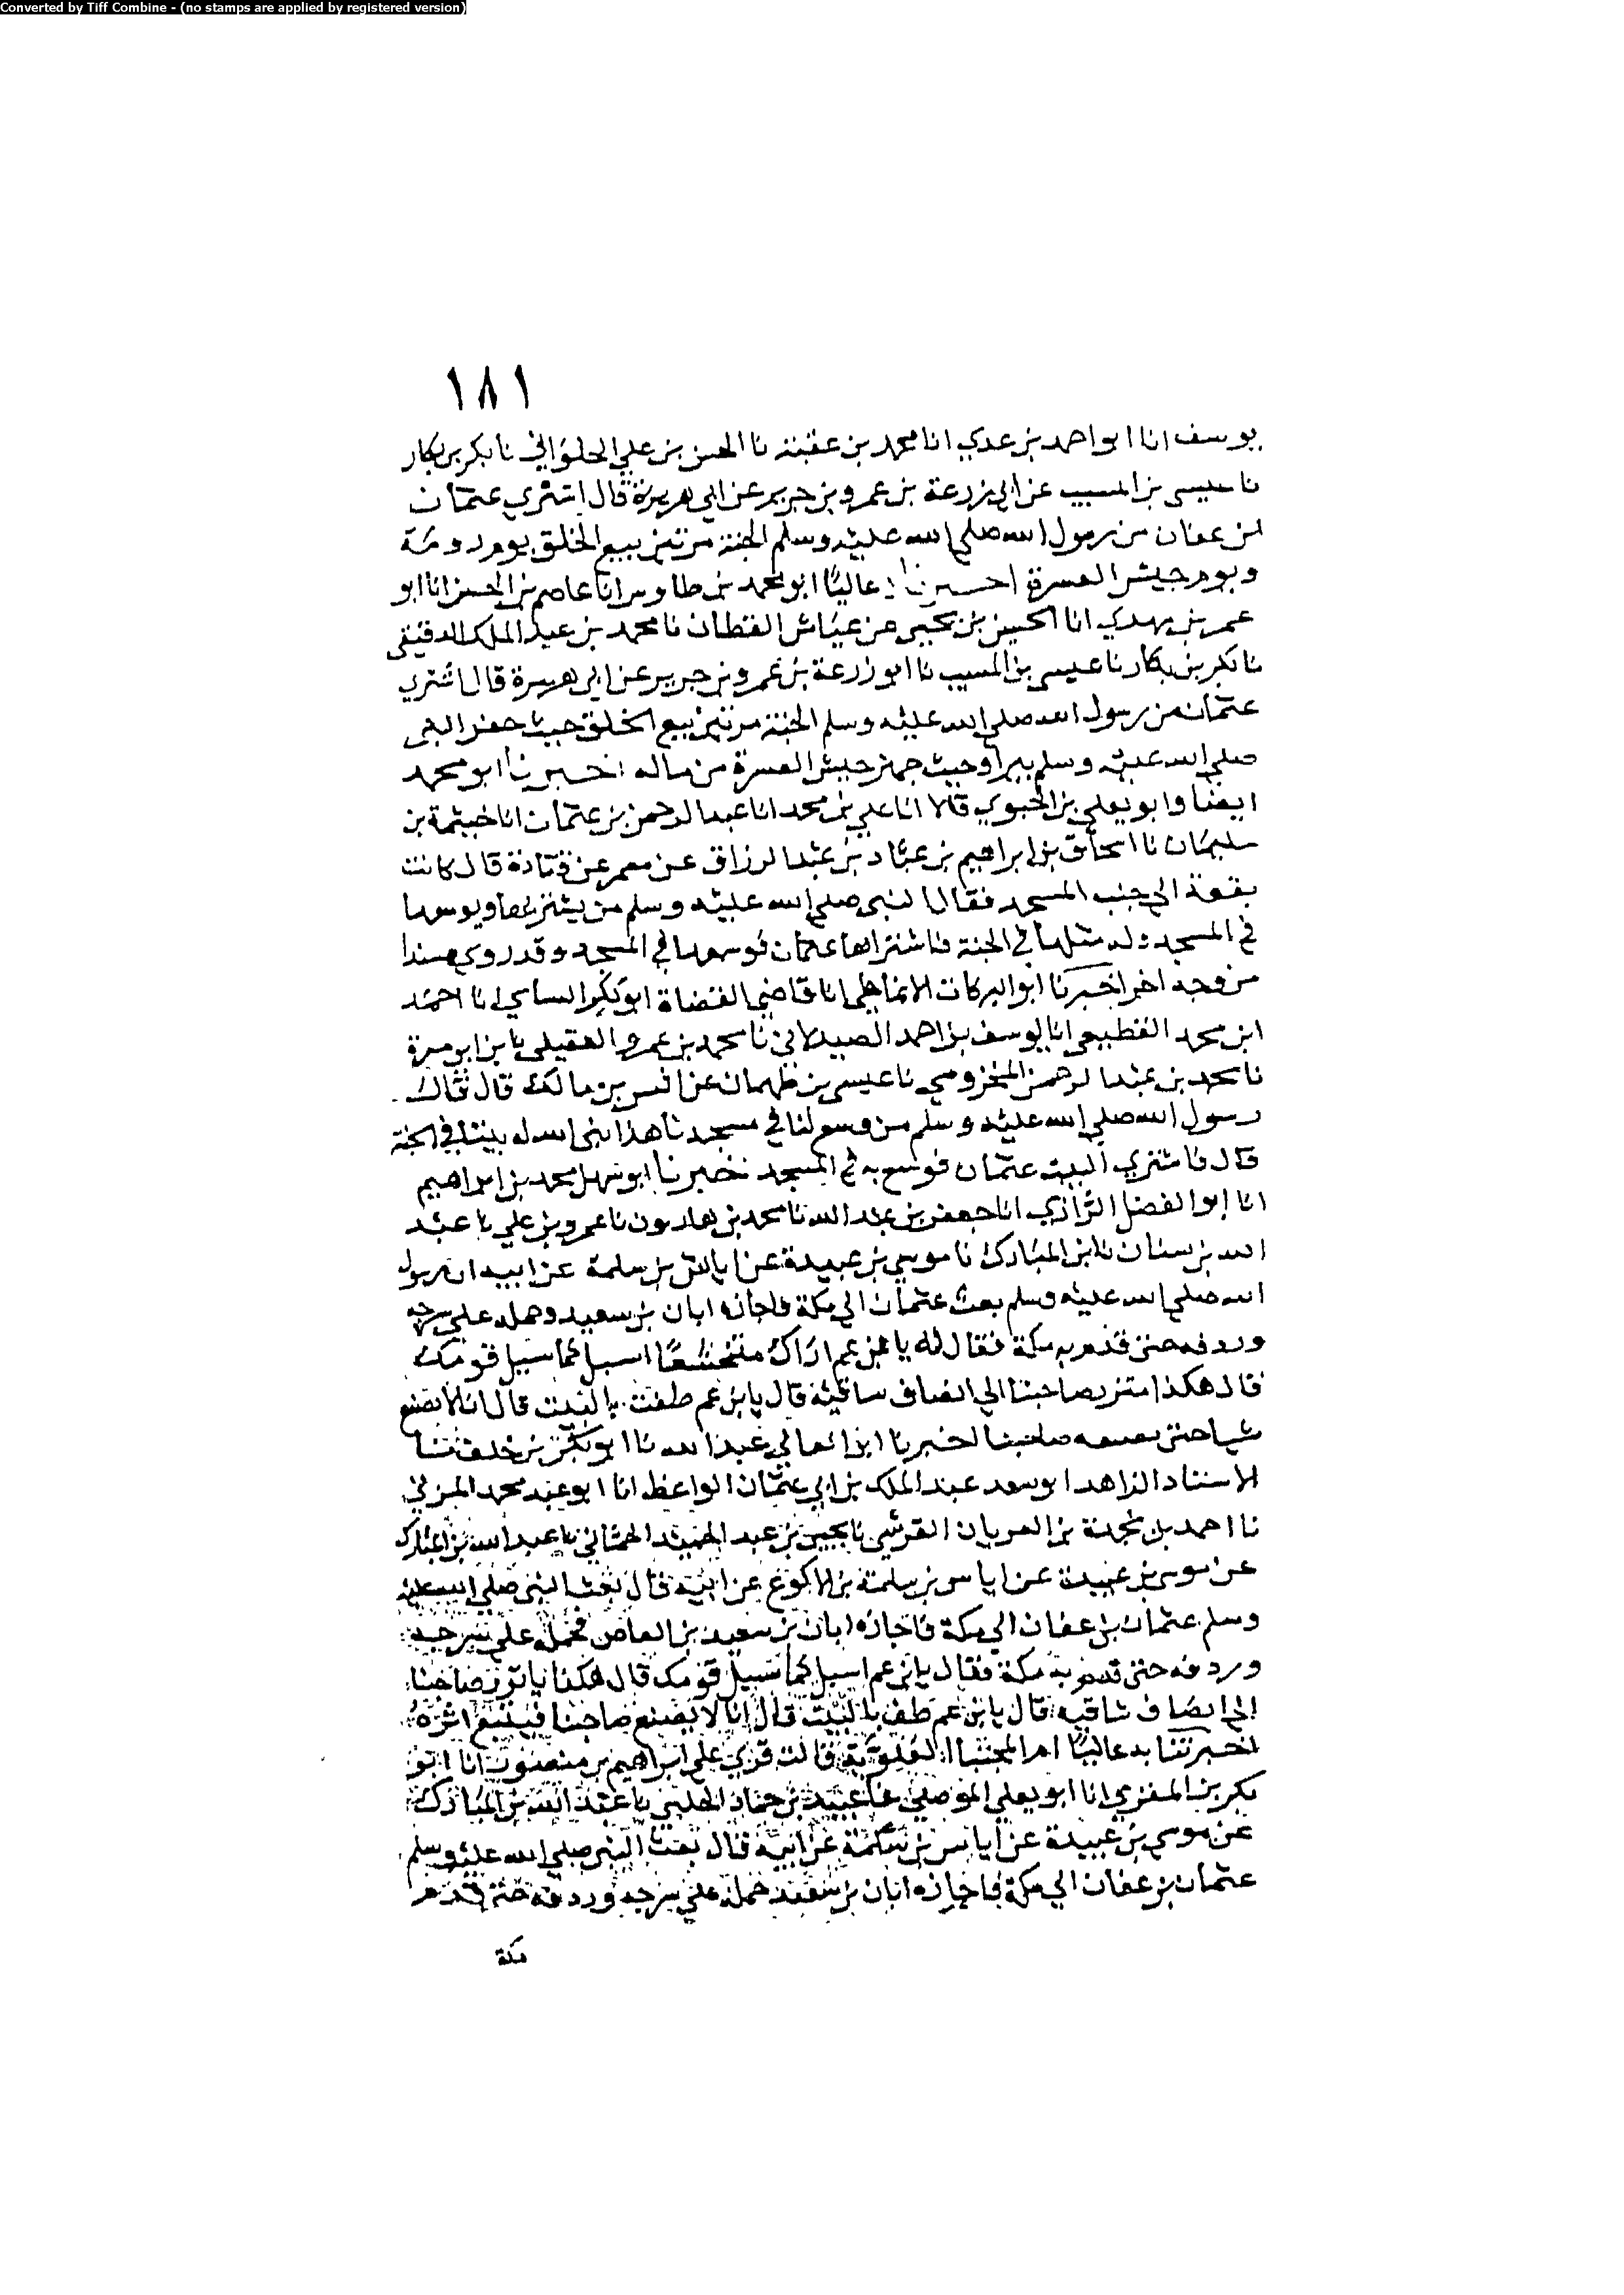 Converted by Tiff Combine - (no stamps are applied by registered version)
١٨١
يوسف انا ابو احمد بن عدي انا محمد بن عقبة نا الحسن بن علي الحلواني نا بكر بن بكار
نا عيسى بن المسيب عن ابي زرعة بن عمرو بن جرير عن ابي هريرة قال اشتري عثمان
بن عفان من رسول الله صلي الله عليه وسلم الجنة مرتين بيع الخلق يوم رومة
ويوم جيش العسرة اخبرناه عاليا ابو محمد بن طاوس انا عاصم بن الحسن انا ابو
عمر بن مهدي انا الحسين بن يحيى بن عياش القطان نا محمد بن عبد الملك الدقيقي
نا بكر بن بكار نا عيسى بن المسيب نا ابو زرعة بن عمرو بن جرير عن ابي هريرة قال اشتري
عثمان من رسول الله صلي الله عليه وسلم الجنة مرتين بيع الخلق حيث حفر النبي
صلي الله عليه وسلم بيرا وحيث جهز جيش العسرة من ماله اخبرنا ابو محمد
ايضا وابو يعلي بن الحبوبي قالا انا علي بن محمد انا عبد الرحمن بن عثمان انا خيثمة بن
سليمان نا اسحاق بن ابراهيم بن عباد بن عبد الرزاق عن معمر عن قتادة قال كانت
بقعة الي جنب المسجد فقال النبي صلي الله عليه وسلم من يشتريها ويوسعها
في المسجد وله مثلها في الجنة فاشتراها عثمان فوسعها في المسجد وقد روي مسندا
من وجه اخر اخبرنا ابو البركات الانماطي انا قاضي القضاة ابو بكر الشامي انا احمد
ابن محمد القطيعي انا يوسف بن احمد الصيدلاني نا محمد بن عمرو العقيلي نا بن ابي مسرة
نا محمد بن عبد الرحمن المخزومي نا عيسى بن طهمان عن انس بن مالك قال قال
رسول الله صلي الله عليه وسلم من وسع لنا في مسجدنا هذا بنى الله له بيتا في الجنة
قال فاشتري البيت عثمان فوسع به في المسجد اخبرنا ابو سهل محمد بن ابراهيم
انا ابو الفضل الرازي انا جعفر بن عبد الله نا محمد بن هارون نا عمرو بن علي نا عبد
الله بن سنان نا بن المبارك نا موسي بن عبيدة عن اياس بن سلمة عن ابيه ان رسول
الله صلي الله عليه وسلم بعث عثمان الي مكة فاجازه ابان بن سعيد وحمله علي سرجه
وردفه حتى قدم به مكة فقال له يا بن عم اراك متخشعا اسبل كما يسبل قومك
قال هكذا يتزر صاحبنا الي انصاف ساقيه قال يا بن عم طفت بالبيت قال انا لا نصنع
شيا حتى يصنعه صاحبنا اخبرنا ابو المعالي عبد الله نا ابو بكر بن خلف نا
الاستاد الزاهد ابو سعد عبد الملك بن ابي عثمان الواعظ انا ابو عبد محمد المزني
نا احمد بن نجدة بن العريان القرشي نا يحيى بن عبد الحميد الحماني نا عبد الله بن المبارك
عن موسى بن عبيدة عن اياس بن سلمة بن الاكوع عن ابيه قال بعث النبي صلي الله عليه
وسلم عثمان بن عفان الي مكة فاجازه ابان بن سعيد بن العاص فحمله علي سرجه
وردفه حتى قدم به مكة فقال يا بن عم اسبل كما يسبل قومك قال هكذا ياتزر صاحبنا
الي انصاف ساقيه قال يا بن عم طف بالبيت قال انا لا نصنع صاحبنا فيتبع اثره
اخبرتنا به عاليا ام المجتبا العلوية قالت قري علي ابراهيم بن منصور انا ابو
بكر بن المقري انا ابو يعلي الموصلي نا عبيد بن جناد الحلبي نا عبد الله بن المبارك
عن موسي بن عبيدة عن اياس بن سلمة عن ابيه قال بعث النبي صلي الله عليه وسلم
عثمان بن عفان الي مكة فاجازه ابان بن سعيد فحمله علي سرجه وردفه حتى قدم
مكة